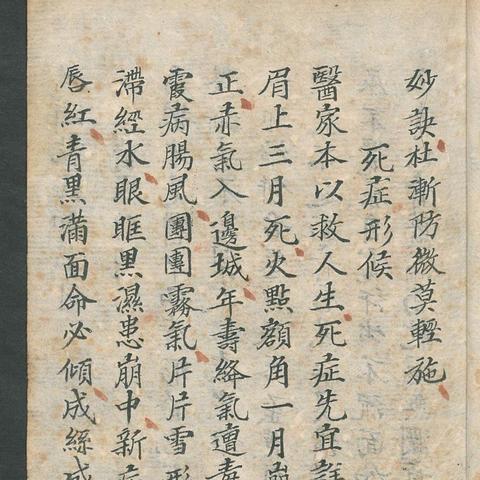 妙訣杜漸防微莫輕施
死症形候
醫家本以救人生死症先宜
眉上三月死火點額角一月
正赤氣入邊城年壽絳氣遭毒
霞病腸風團團霧氣片片雪形
滯經水眼眶黑濕患崩中新
唇紅青黑滿面命必傾成絲成